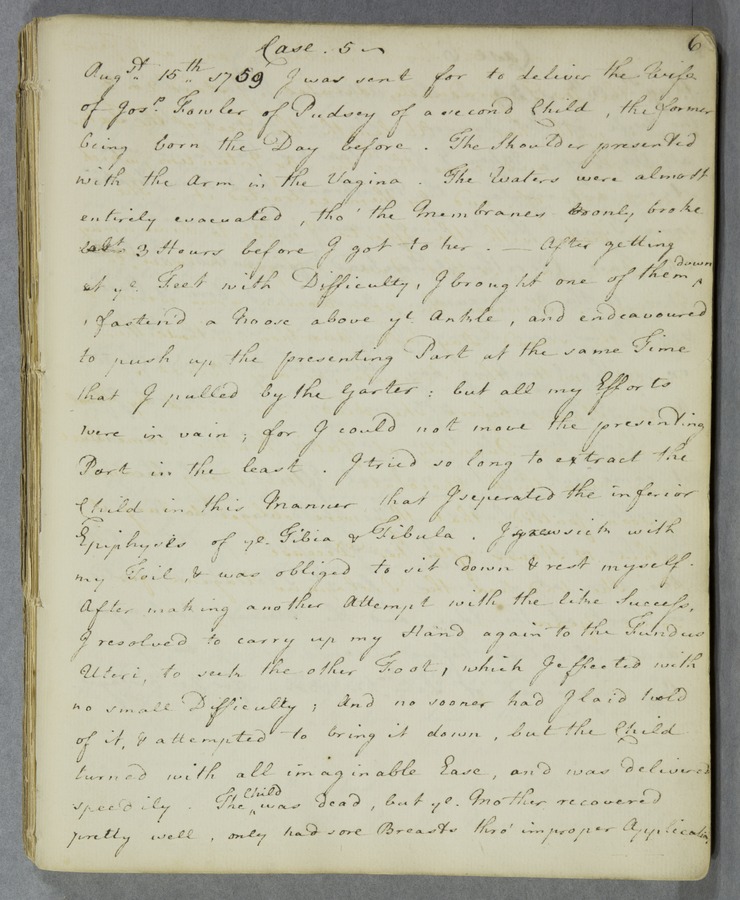 Case. 5
6
Augst. 15th. 1759 I was sent for to deliver the Wife
of Josh. Fowler of Pudsey of a second Child, the former
being born the Day before. The Shoulder presented
with the Arm in the Vagina. The Waters were almost
entirely evacuated, tho' the Membranes only broke
3 Hours before I got to her. — After getting
at ye. Feet with Difficulty, I brought one of them down
, fasten'd a Noose above ye. Ankle, and endeavoured
to push up the presenting Part at the same Time
that I pulled by the Garter: but all my Efforts
were in vain; for I could not move the presenting
Part in the least. I tried so long to extract the
Child in this Manner that I seperated the inferior
Epiphysis of ye. Tibia & Fibula. I grew sick with
my Toil, & was obliged to sit down & rest myself.
After making another Attempt with the like Success,
I resolved to carry up my Hand again to the Fundus
Uteri, to seek the other Foot, which I effected with
no small Difficulty; And no sooner had I laid hold
of it, & attempted to bring it down, but the Child
turned with all imaginable Ease, and was delivered
speedily. The Child was dead, but ye. Mother recovered
pretty well, only had sore Breasts thro' improper Application